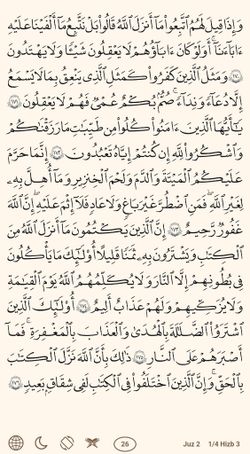 وَإِذَا قِيلَ لَهُمُ ٱتَّبِعُوا۟ مَآ أَنزَلَ ٱللَّهُ قَالُوا۟ بَلْ نَتَّبِعُ مَآ أَلْفَيْنَا عَلَيْهِ
ءَابَآءَنَآ ۗ أَوَلَوْ كَانَ ءَابَآؤُهُمْ لَا يَعْقِلُونَ شَيْـًٔا وَلَا يَهْتَدُونَ
١٧٠ وَمَثَلُ ٱلَّذِينَ كَفَرُوا۟ كَمَثَلِ ٱلَّذِى يَنْعِقُ بِمَا لَا يَسْمَعُ
إِلَّا دُعَآءً وَنِدَآءً ۚ صُمٌّۢ بُكْمٌ عُمْىٌ فَهُمْ لَا يَعْقِلُونَ ١٧١
يَـٰٓأَيُّهَا ٱلَّذِينَ ءَامَنُوا۟ كُلُوا۟ مِن طَيِّبَـٰتِ مَا رَزَقْنَـٰكُمْ
وَٱشْكُرُوا۟ لِلَّهِ إِن كُنتُمْ إِيَّاهُ تَعْبُدُونَ ١٧٢ إِنَّمَا حَرَّمَ
عَلَيْكُمُ ٱلْمَيْتَةَ وَٱلدَّمَ وَلَحْمَ ٱلْخِنزِيرِ وَمَآ أُهِلَّ بِهِۦ
لِغَيْرِ ٱللَّهِ ۖ فَمَنِ ٱضْطُرَّ غَيْرَ بَاغٍ وَلَا عَادٍ فَلَآ إِثْمَ عَلَيْهِ ۚ إِنَّ ٱللَّهَ
غَفُورٌ رَّحِيمٌ ١٧٣ إِنَّ ٱلَّذِينَ يَكْتُمُونَ مَآ أَنزَلَ ٱللَّهُ مِنَ
ٱلْكِتَـٰبِ وَيَشْتَرُونَ بِهِۦ ثَمَنًا قَلِيلًا ۙ أُو۟لَـٰٓئِكَ مَا يَأْكُلُونَ
فِى بُطُونِهِمْ إِلَّا ٱلنَّارَ وَلَا يُكَلِّمُهُمُ ٱللَّهُ يَوْمَ ٱلْقِيَـٰمَةِ
وَلَا يُزَكِّيهِمْ وَلَهُمْ عَذَابٌ أَلِيمٌ ١٧٤ أُو۟لَـٰٓئِكَ ٱلَّذِينَ
ٱشْتَرَوُا۟ ٱلضَّلَـٰلَةَ بِٱلْهُدَىٰ وَٱلْعَذَابَ بِٱلْمَغْفِرَةِ ۚ فَمَآ
أَصْبَرَهُمْ عَلَى ٱلنَّارِ ١٧٥ ذَٰلِكَ بِأَنَّ ٱللَّهَ نَزَّلَ ٱلْكِتَـٰبَ
بِٱلْحَقِّ ۗ وَإِنَّ ٱلَّذِينَ ٱخْتَلَفُوا۟ فِى ٱلْكِتَـٰبِ لَفِى شِقَاقٍۭ بَعِيدٍ ١٧٦
26 Juz 2 1/4 Hizb 3